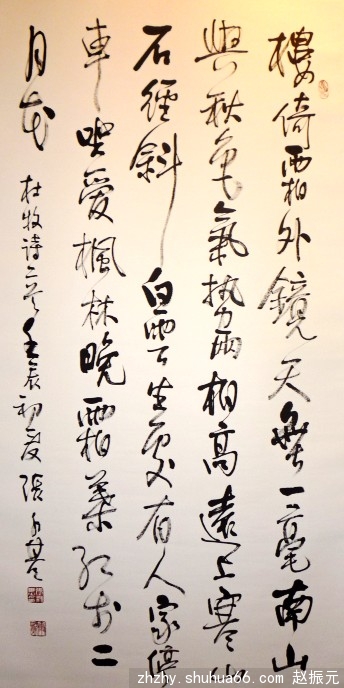 樓倚霜外鏡天無一毫南山
與秋色氣勢兩相高遠上寒山
石徑斜白雲生處有人家停
車坐愛楓林晚霜葉紅於二
月花
杜牧诗二首壬辰初夏張
zhzhy.shuhua66.com 赵振元